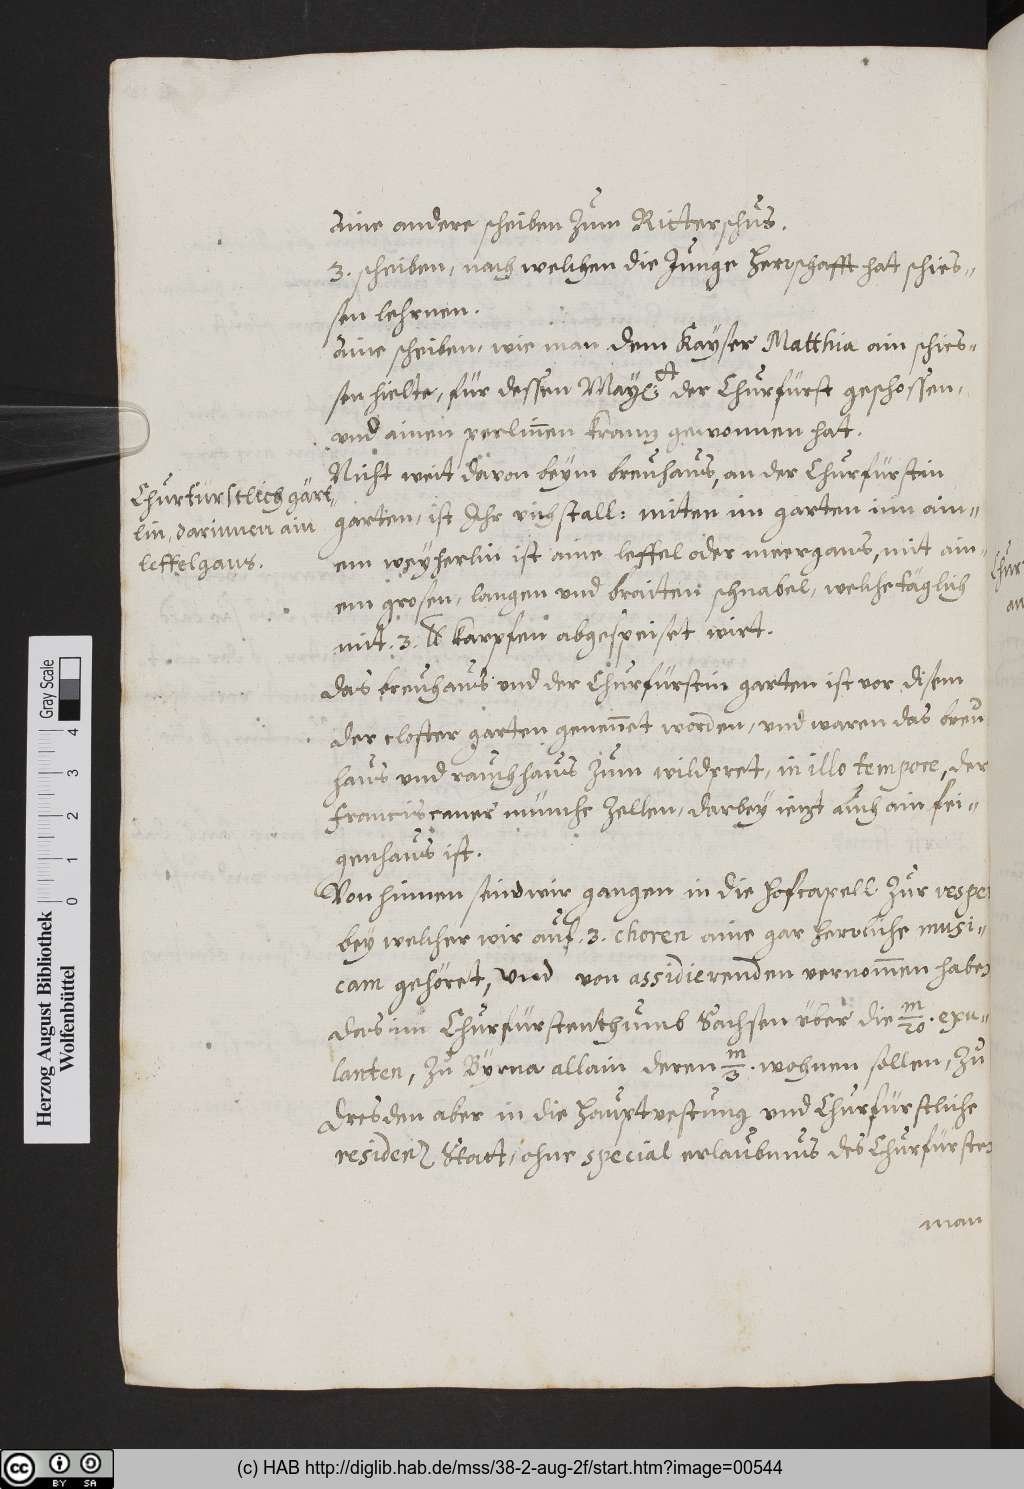 aine andere scheiben zum Ritterschus.
3. scheiben, nach welchen die Junge herrschafft hat schies=
sen lehrnen.
aine scheiben, wie man dem Kayser Matthia ain schies=
sen hielte, für dessen May: tt der Churfürst geschossen,
und ainen perlinen krantz gewonnen hat.
Nicht weit davon beym breuhaus, an der Churfürstin
garten, ist Ihr viehstall: miten im garten inn ain=
em weyherlin ist aine leffel oder meergans, mit ain=
em grosen, langen und braiten schnabel, welche täglich
mit. 3. ℔ karpfen abgespeiset wirt.
das breuhaus und der Churfürstin garten ist vor disem
der closter garten genennet worden, und waren das breu
haus und rauchhaus zum wildpret, in illo tempore, der
franciscaner münche zellen, darbey ietzt auch ain fei=
genhaus ist.
Von hinnen seind wir gangen in die hofcapell zur vesper
bey welcher wir auf. 3. choren aine gar herrliche musi=
cam gehöret, und von assidierenden vernommen haben
das im Churfürstenthumb Sachsen über die m/20. exu=
lanten, zu Byrna allain deren m/3. wohnen sollen, zu
dresden aber in die hauptvestung und Churfürstliche
residenz Statt, ohne special erlaubnus des Churfürsten
man
Churfürstlich gärt=
lin, darinnen ain
leffelgans.
Chur
an
Herzog August Bibliothek
Wolfenbüttel
0 1 2 3 4
Gray Scale
cc BY SA
(c) HAB http://diglib.hab.de/mss/38-2-aug-2f/start.htm?image=00544